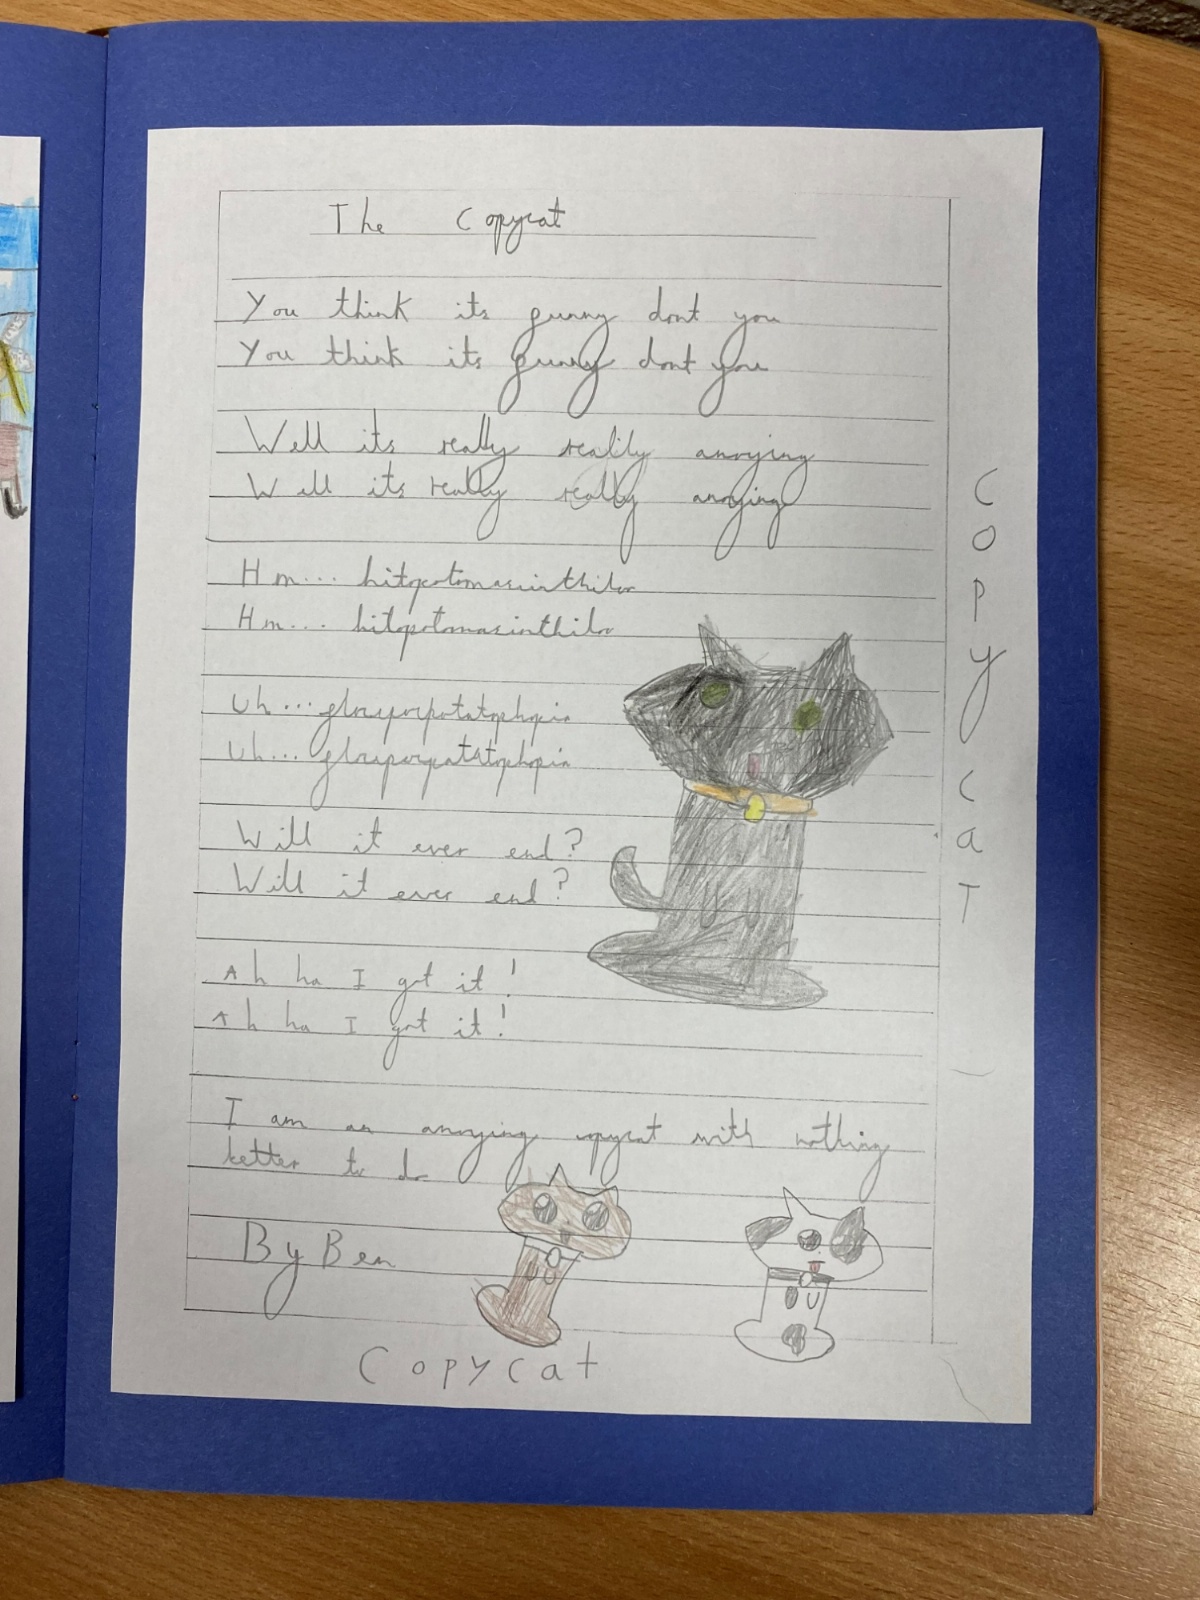 The Copycat
You think its funny dont you
You think its funny dont you
Well its really really annoying
Well its really really annoying
Hm... hitopotomasinthilor
Hm... hitopotomasinthilor
Uh...
Uh...
Will it ever end?
Will it ever end?
Ah ha I got it!
Ah ha I got it!
I am an annoying copycat with nothing
better to do
By Ben
Copycat
COPY CaT